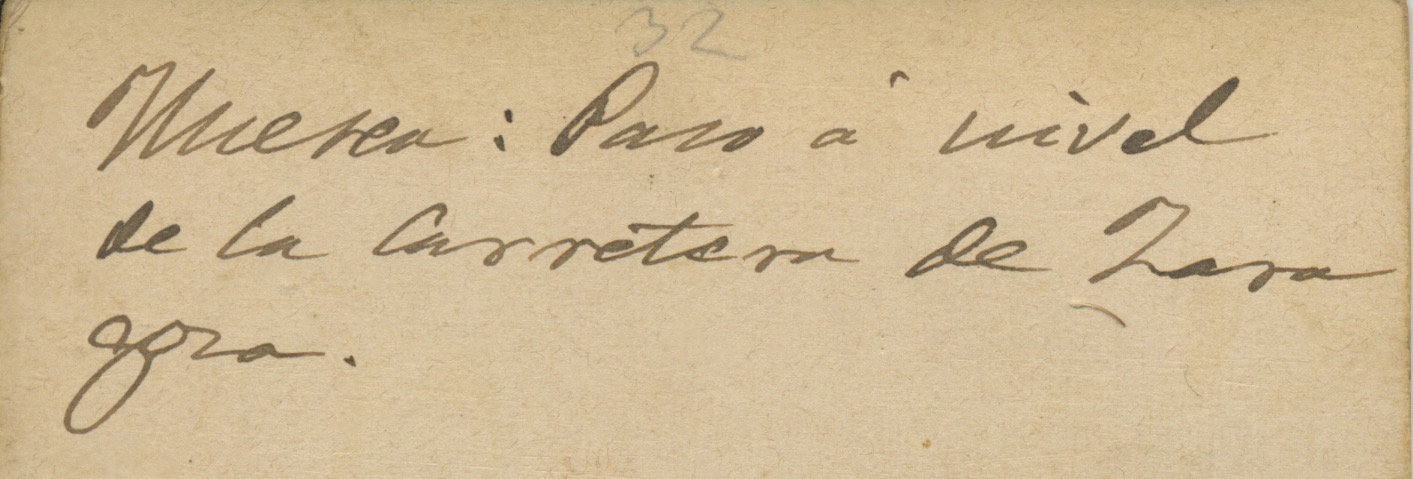 32
Huesca: Paso á nivel
de la Carretera de Zara
goza.